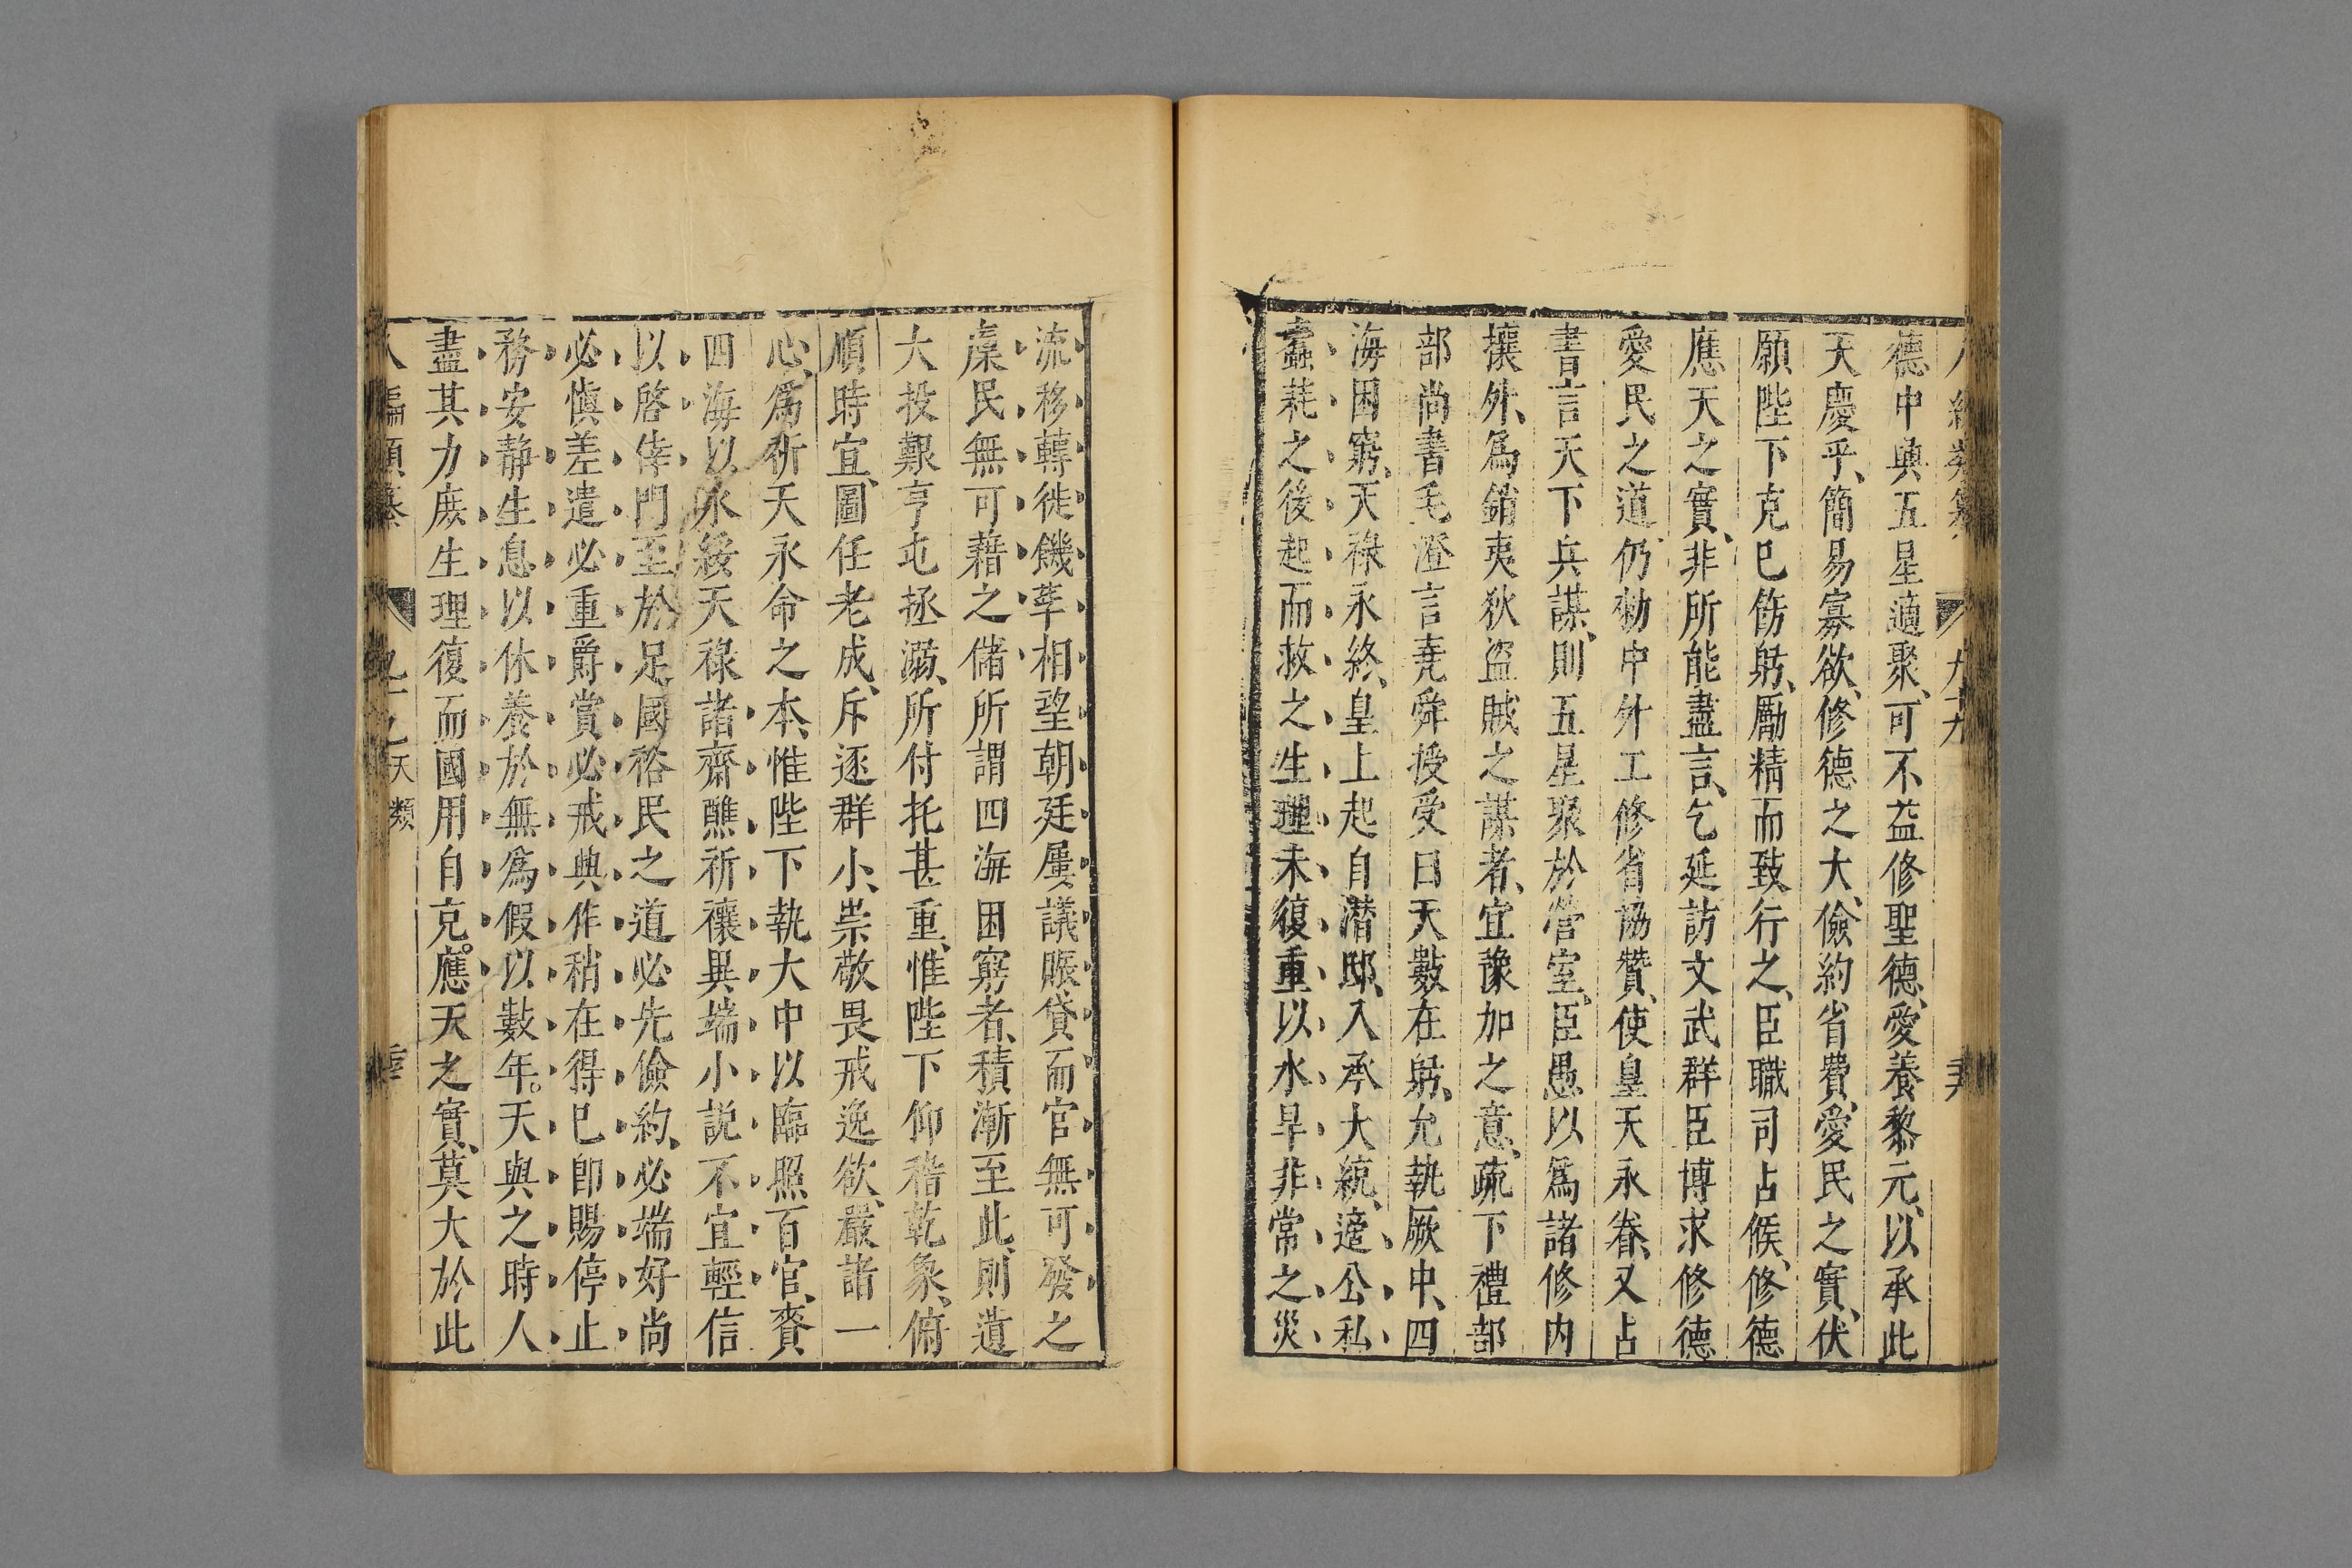 德中興五星適聚、可不益修聖德、愛養黎元、以承此
天慶乎、簡易寡欲、修德之大、儉約省費、愛民之實、伏
願陛下克已飭躬、勵精而致行之、臣職司占候、修德
應天之實、非所能盡言、乞延訪文武群臣博求修德
愛民之道、仍勑中外工修省協贊、使皇天永眷、又占
書言天下兵謀、則五星聚於營室、臣愚以爲諸修内
攘外、爲銷夷狄盜賊之謀者、宜豫加之意、疏下禮部
部尚書毛澄言堯舜授受曰天數在躬、允執厥中、四
海困窮、天祿永終、皇上起自潛邸、入承大統、適公私
蠹耗之後起而救之生理未復重以水旱非常之災
流移轉徙饑莩相望朝廷屢議賑貸而官無可發之
廪民無可藉之儲所謂四海困窮者、積漸至此、則遺
大投艱亨屯拯溺、所付托甚重、惟陛下仰稽乾象、俯
順時宜、圖任老成、斥逐群小、崇敬畏戒逸欲、嚴諸一
心、爲祈天永命之本、惟陛下執大中以臨照百官、賚
四海以永綏天祿諸齋醮祈禳異端小説不宜輕信
以啓倖門至於足國裕民之道必先儉約、必端好尚
必慎差遣必重爵賞必戒興作稍在得已卽賜停止
務安靜生息以休養於無爲假以數年。天與之時人
盡其力庶生理復而國用自克。應天之實、莫大於此